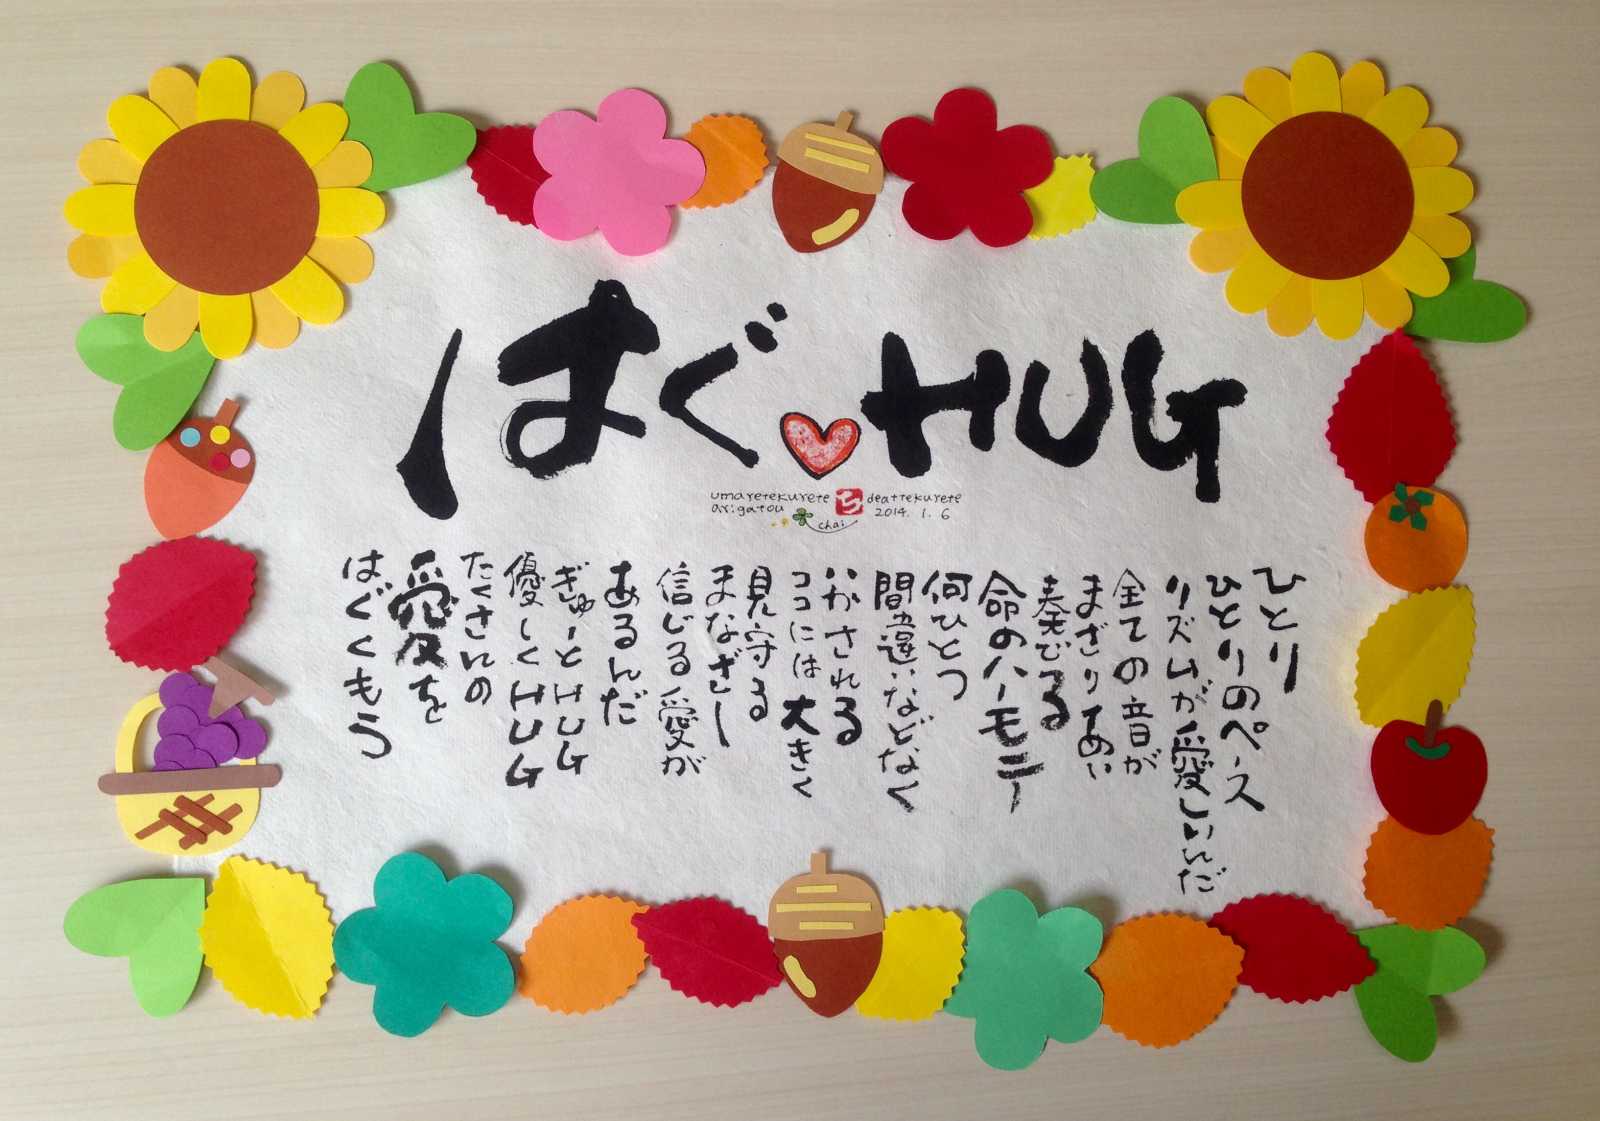 はぐ HUG
umaretekurete
arigatou
ち
chai
deattekurete
2014. 1. 6
ひとり
ひとりのペース
リズムが愛しいんだ
全ての音が
まざりあい
奏でる
命のハーモニー
何ひとつ
間違いなどなく
いかされる
ココには大きく
見守る
まなざし
信じる愛が
あるんだ
ぎゅーとHUG
優しくHUG
たくさんの
愛を
はぐくもう